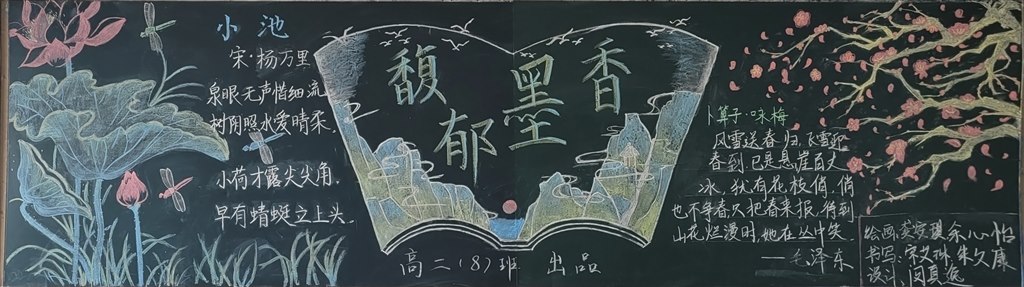 小池
宋·杨万里
泉眼无声惜细流,
树阴照水爱晴柔。
小荷才露尖尖角,
早有蜻蜓立上头。
馥郁墨香
高二(8)班 出品
卜算子·咏梅
风雪送春归,飞雪迎
春到 已是悬崖百丈
冰,犹有花枝俏 俏
也不争春,只把春来报,待到
山花烂漫时,她在丛中笑.
——毛泽东
绘画: 余心怡
书写:
设计: